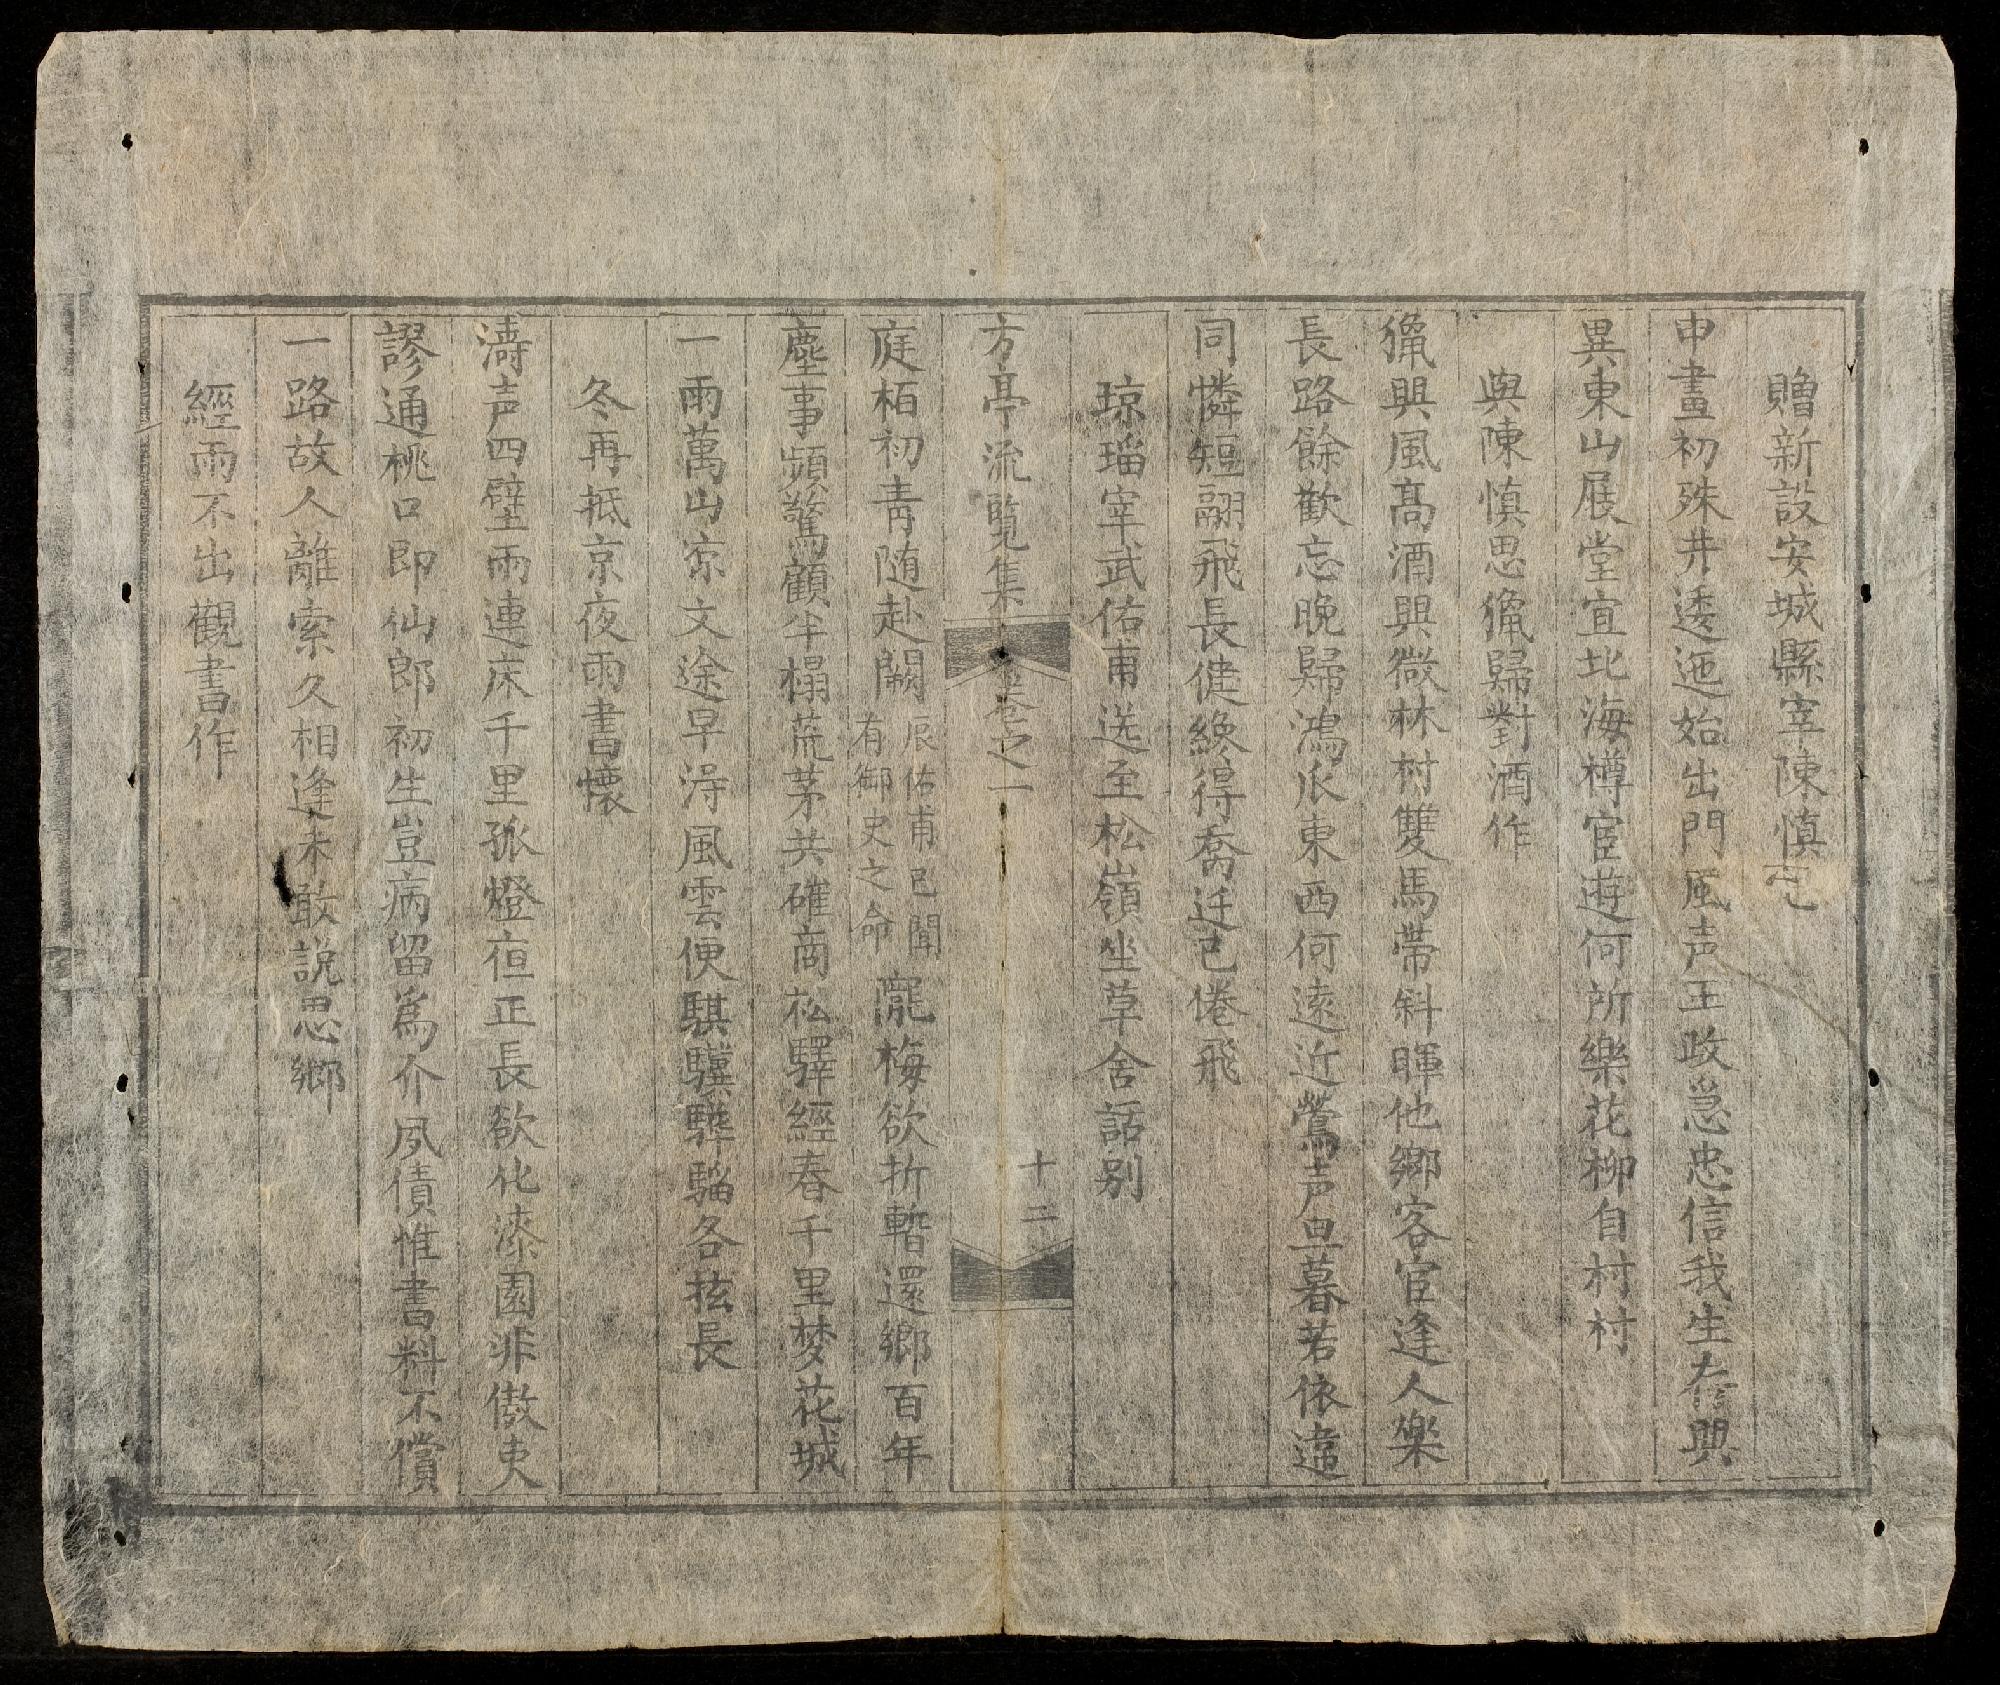 贈新設安城縣宰陳慎
申畫初殊井逶迤始出門風声王政急忠信我生存興
異東山展堂宜北海樽宦遊何所樂花柳自村村
與陳慎思獵歸對酒作
獵興風高酒興微林村雙馬帶斜暉他鄉客宦逢人樂
長路餘歡忘晚歸鴻爪東西何遠近鶯声旦暮若依違
同憐短翮飛長健纔得喬迁已倦飛
琼瑙宰武佑甫送至松嶺坐草舍話别
方亭流覽集卷之一
十二
庭栢初青随赴闕
辰佑甫已聞
有御史之命
隴梅欲折暫還鄉百年
塵事頻驚顧半榻荒茅共確商松驛經春千里梦花城
一雨萬山凉文途早淂風雲便騏驥驊騮各抜長
冬再抵京夜雨書懷
濤声四壁雨連床千里孤燈夜正長欲化漆園非傲吏
謬通桃口即仙郎初生豈病留為介夙債惟書料不償
一路故人離索久相逢未敢説思鄉
經雨不出觀書作